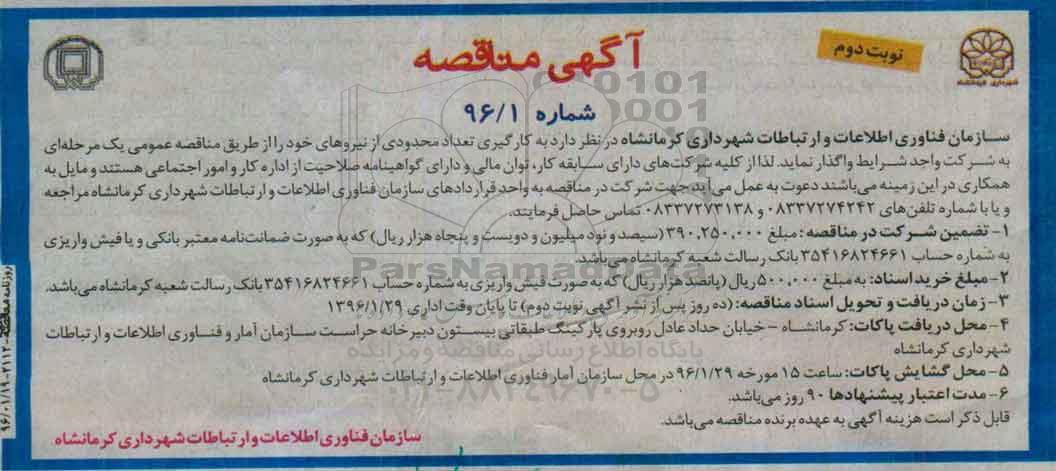 نوبت دوم
آگهی مناقصه
شماره ۹۶/۱
سازمان فناوری اطلاعات و ارتباطات شهرداری کرمانشاه در نظر دارد به کارگیری تعداد محدودی از نیروهای خود را از طریق مناقصه عمومی یک مرحله‌ای
به شرکت واجد شرایط واگذار نماید. لذا از کلیه شرکت‌های دارای سابقه کار، توان مالی و دارای گواهینامه صلاحیت از اداره کار و امور اجتماعی هستند و مایل به
همکاری در این زمینه می‌باشند دعوت به عمل می‌آید جهت شرکت در مناقصه به واحد قراردادهای سازمان فناوری اطلاعات و ارتباطات شهرداری کرمانشاه مراجعه
و یا با شماره تلفن‌های ۰۸۳۳۷۲۷۴۲۴۲ و ۰۸۳۳۷۲۷۳۱۳۸ تماس حاصل فرمایند.
۱- تضمین شرکت در مناقصه: مبلغ ۳۹۰،۲۵۰،۰۰۰ (سیصد و نود میلیون و دویست و پنجاه هزار ریال) که به صورت ضمانت‌نامه معتبر بانکی و یا فیش واریزی
به شماره حساب ۳۵۴۱۶۸۲۴۶۶۱ بانک رسالت شعبه کرمانشاه می‌باشد.
۲- مبلغ خرید اسناد: به مبلغ ۵۰۰،۰۰۰ ریال (پانصد هزار ریال) که به صورت فیش واریزی به شماره حساب ۳۵۴۱۶۸۲۴۶۶۱ بانک رسالت شعبه کرمانشاه می‌باشد.
۳- زمان دریافت و تحویل اسناد مناقصه: (ده روز پس از نشر آگهی نوبت دوم) تا پایان وقت اداری ۱۳۹۶/۱/۲۹
۴- محل دریافت پاکات: کرمانشاه - خیابان حداد عادل روبروی پارکینگ طبقاتی بیستون دبیرخانه حراست سازمان آمار و فناوری اطلاعات و ارتباطات
شهرداری کرمانشاه
۵- محل گشایش پاکات: ساعت ۱۵ مورخه ۹۶/۱/۲۹ در محل سازمان آمار فناوری اطلاعات و ارتباطات شهرداری کرمانشاه
۶- مدت اعتبار پیشنهادها ۹۰ روز می‌باشد.
قابل ذکر است هزینه آگهی به عهده برنده مناقصه می‌باشد.
سازمان فناوری اطلاعات و ارتباطات شهرداری کرمانشاه
شهرداری کرمانشاه
ParsNamadData
پایگاه اطلاع رسانی مناقصه و مزایده
۰۲۱-۸۸۳۴۹۶۷۰-۵